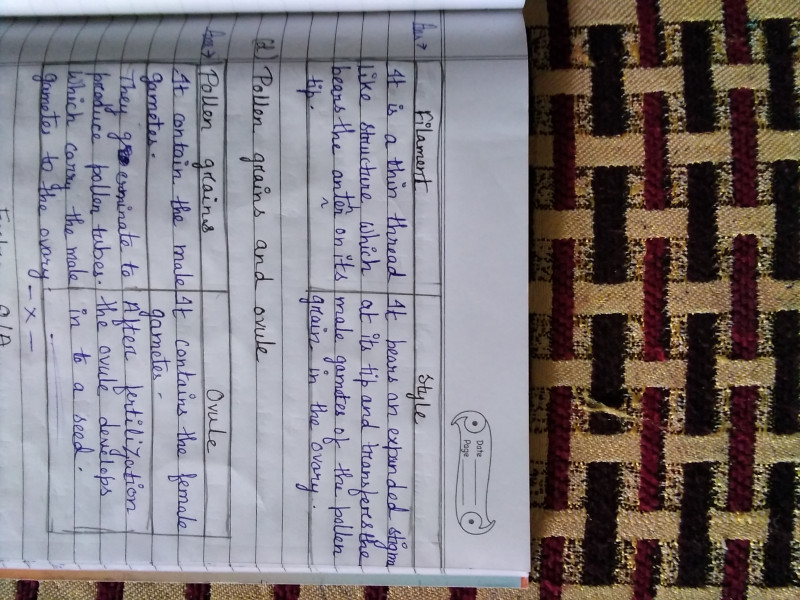 Date
Page
Ans→
Filament
Style
It is a thin thread
like structure which
bears the anter on its
tip.
It bears an expanded stigma
at its tip and transferes the
male gametes of the pollen
grain in the ovary.
(d) Pollen grains and ovule
Ans→
Pollen grains
Ovule
It contain the male
gametes.
It contains the female
gametes.
They germinate to
produce pollen tubes.
which carry the male
gametes to the ovary.
After fertilization
the ovule develops
in to a seed.
— x —